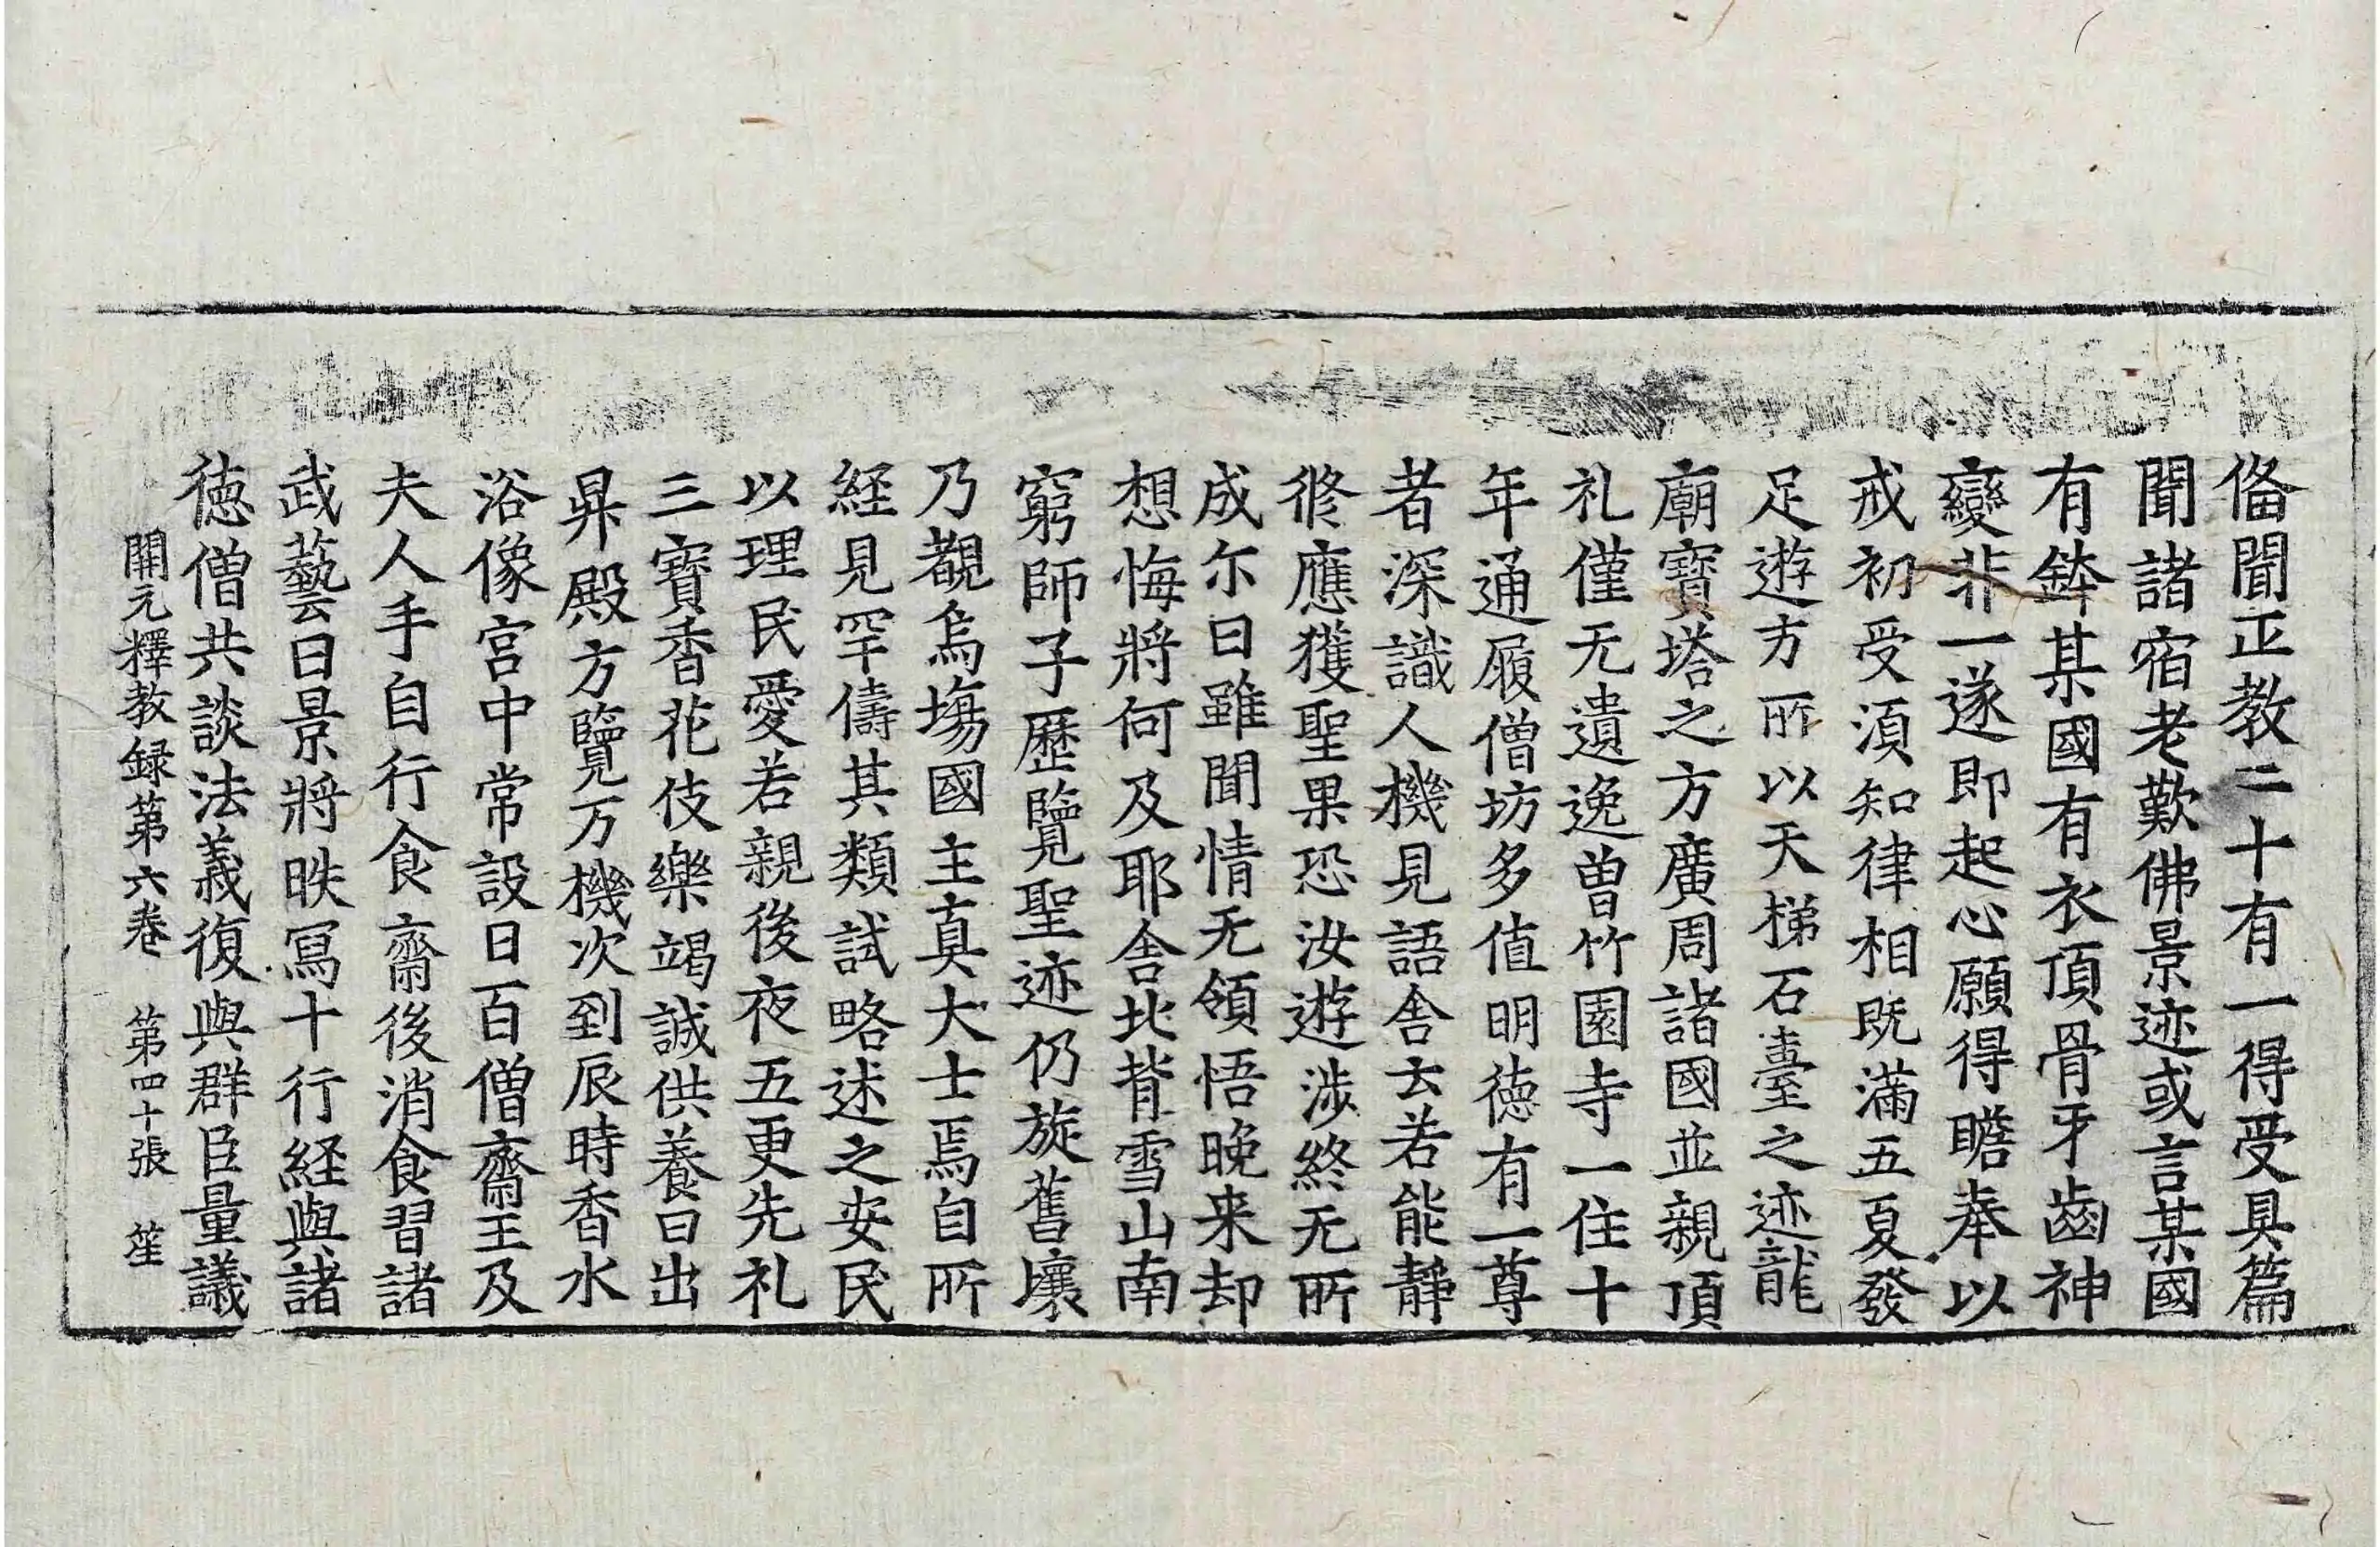 俻聞正教二十有一得受具篇
聞諸宿老歎佛景迹或言某國
有鉢某國有衣頂骨牙齒神
變非一遂即起心願得瞻奉以
戒初受湏知律相既滿五夏發
足遊方所以天梯石臺之迹龍
廟寶塔之方廣周諸國並親頂
礼僅无遺逸曽竹園寺一住十
年通履僧坊多值明徳有一尊
者深識人機見語舎云若能靜
修應獲聖果恐汝遊涉終无所
成尓日雖聞情无領悟晚来却
想悔將何及耶舎北背雪山南
窮師子歷覽聖迹仍旋舊壤
乃覩烏塲國主真大士焉自所
経見罕儔其類試略述之安民
以理民愛若親後夜五更先礼
三寶香花伎樂竭誠供養日出
昇殿方覽万機次到辰時香水
浴像宮中常設日百僧齋王及
夫人手自行食齋後消食習諸
武藝日景將昳冩十行経與諸
徳僧共談法義復與群臣量議
開元釋教録第六卷 第四十張 笙